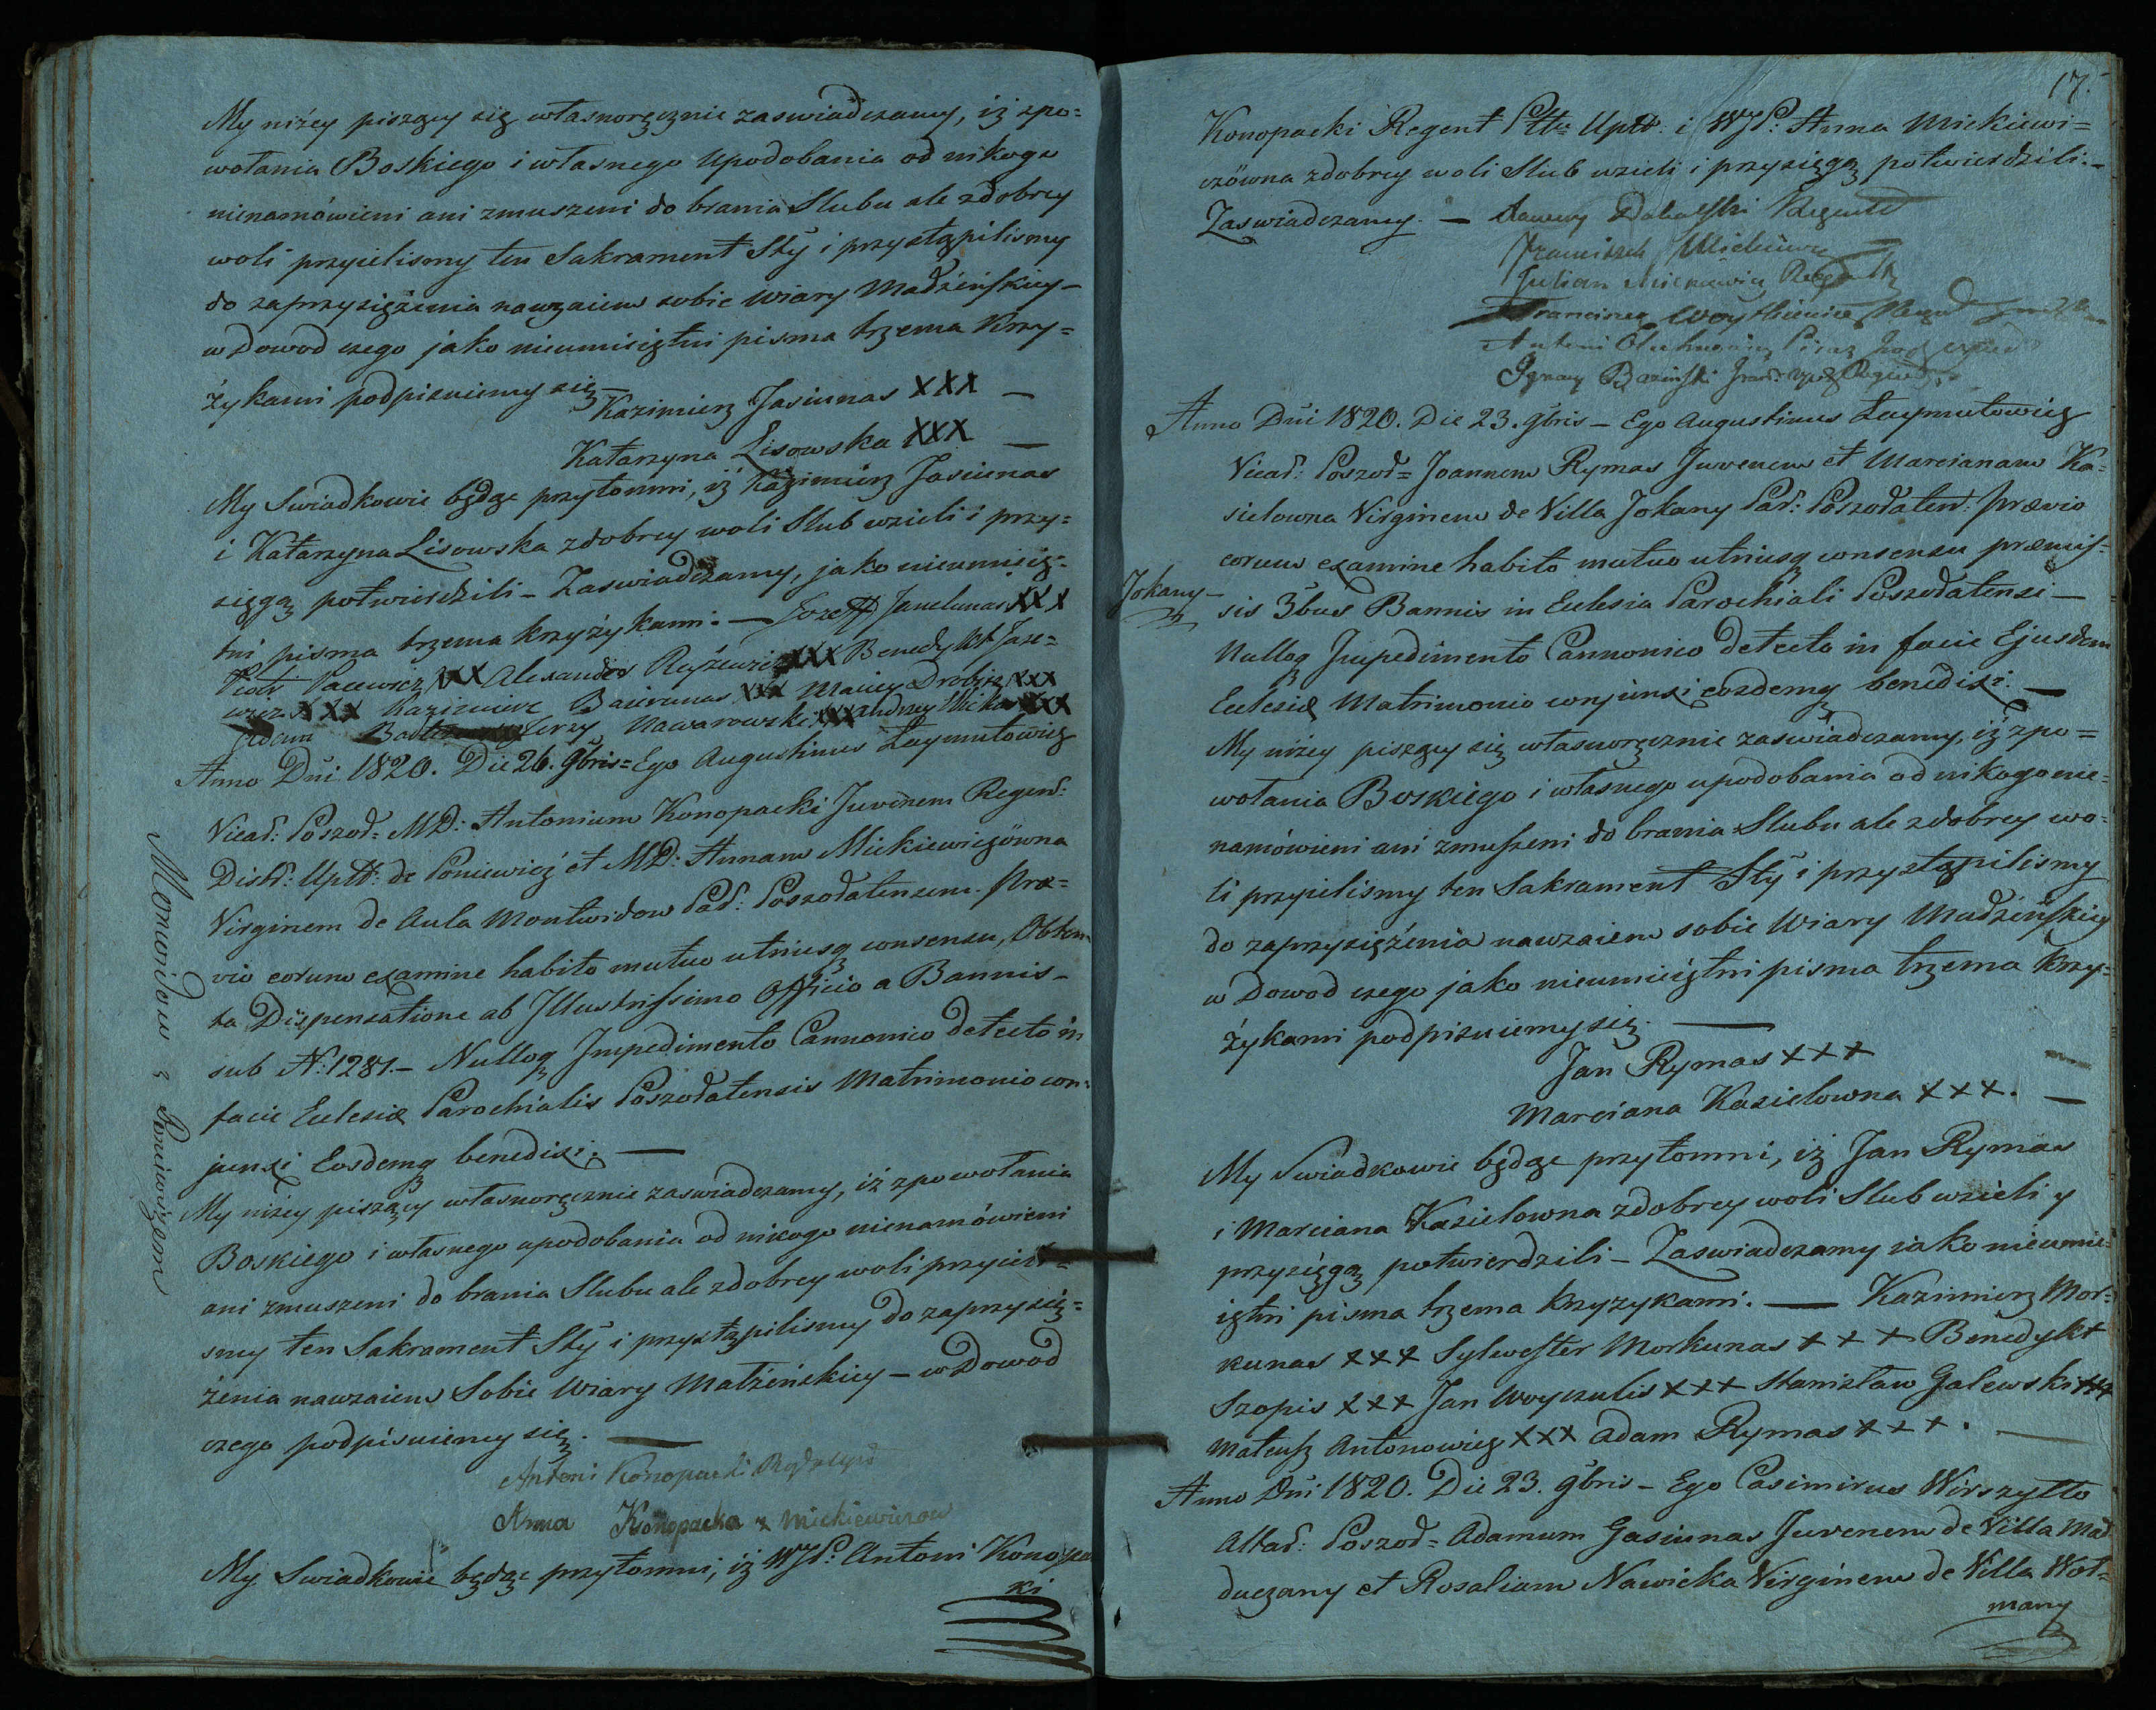 My niżey piszący się własnoręcznie zaswiadczamy, iż zpo=
wołania Boskiego i własnego Upodobania od nikogo
nienamówieni ani zmuszeni do brania Slubu ale zdobrey
woli przyielismy ten Sakrament Sty i przystąpilismy
do zaprzysiężenia nawzaiem sobie Wiary Małżeńskiey –
w Dowod czego jako nieumieiętni pisma trzema Krzy=
żykami podpisuiemy się –
Kazimierz Jasiunas XXX –
Katarzyna Lisowska XXX –
My Swiadkowie będąc przytomni, iż Kazimierz Jasiunas
i Katarzyna Lisowska zdobrey woli Slub wzieli i przy=
sięgą potwierdzili – Zaswiadczamy, jako nieumieię=
tni pisma trzema krzyżykami. — Jozeff Janelunas XXX
Piotr Pacewicz XXX Alexander Ryżewicz XXX Benedykt Jase=
wicz XXX Kazimierz Baierunas XXX Maciey Drobisz XXX
Adam Jerzy Nawarowski XXX Andrzey Micka XXX
Anno Dni 1820. Die 26. 9bris = Ego Augustinus Laymutowicz
Vicar: Poszod= MD: Antonium Konopacki Juvenem Regen:
Distr: Uptt: de Poniewież et MD: Annam Mickiewiczówna
Virginem de Aula Montwidow Par: Poszodatensem. Præ=
vio eorum examine habito mutuo utriusq consensu, Obten=
ta Dispensatione ab Illustrissimo Officio a Bannis –
sub N: 1281. – Nulloq Impedimento Cannonico detecto in
facie Eclesiæ Parochialis Poszodatensis Matrimonio con=
junxi Eosdemq benedixi. —
Monwidow z Poniewiżem
My niżey piszący własnoręcznie zaswiadczamy, iż zpowołania
Boskiego i własnego upodobania od nikogo nienamówieni
ani zmuszeni do brania Slubu ale zdobrey woli przyieli=
smy ten Sakrament Sty i przystąpilismy do zaprzysię=
żenia nawzaiem Sobie Wiary Małżeńskiey – w Dowod
czego podpisuiemy się. —
Antoni Konopacki
Anna Konopacka z Mickiewiczow
My Swiadkowie będąc przytomni, iż WJP: Antoni Konopac
ki
17.
Konopacki Regent Pttu Uptt: i WJP: Anna Mickiewi=
czówna zdobrey woli Slub wzieli i przysięgą potwierdzili. –
Zaswiadczamy. –
Franciszek Mickiewicz
Julian Mickiewicz Regent
Franciszek Woytkiewicz
Antoni
Ignacy
Anno Dni 1820. Die 23. 9bris – Ego Augustinus Laymutowicz
Vicar: Poszod= Joannem Rymas Juvenem et Marcianam Ka=
sielowna Virginem de Villa Jokany Par: Poszodaten: prævio
eorum examine habito mutuo utriusq consensu præmis=
Jokany –
sis 3bus Bannis in Eclesia Parochiali Poszodatensi –
Nulloq Impedimento Cannonico detecto in facie Ejusdem
Eclesiæ Matrimonio conjunxi eosdemq benedixi. —
My niżey piszący się własnoręcznie zaswiadczamy, iż zpo=
wołania Boskiego i własnego upodobania od nikogo nie=
namówieni ani zmuszeni do brania Slubu ale zdobrey wo=
li przyielismy ten Sakrament Sty i przystąpilismy
do zaprzysiężenia nawzaiem sobie Wiary Małżeńskiey
w Dowod czego jako nieumieiętni pisma trzema krzy=
żykami podpisuiemy się. —
Jan Rymas +++
Marciana Kasielowna +++. –
My Swiadkowie będąc przytomni, iż Jan Rymas
i Marciana Kasielowna zdobrey woli Slub wzieli y
przysięgą potwierdzili – Zaswiadczamy iako nieumie=
iętni pisma trzema krzyzykami. — Kazimierz Mor=
kunas +++ Sylwester Morkunas +++ Benedykt
Szopis +++ Jan Woyszulis +++ Stanisław Galewski +++
Mateusz Antonowicz XXX Adam Rymas +++. –
Anno Dni 1820. Die 23. 9bris – Ego Casimirus Wirszytto
Altar: Poszod= Adamum Gasiunas Juvenem de Villa Mad
duczany et Rosaliam Nawicka Virginem de Villa Wot=
many